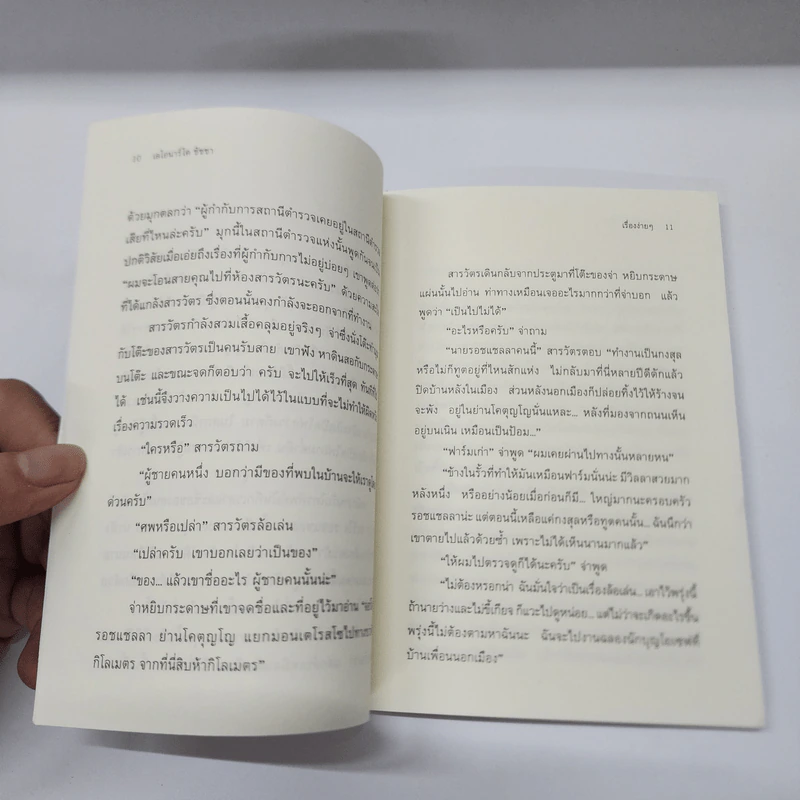 10 เลโอนาร์โด ชัชชา
ด้วยมุกตลกว่า “ผู้กำกับการสถานีตำรวจเคยอยู่ในสถานีตำรวจ
เสียที่ไหนล่ะครับ” มุกนี้ในสถานีตำรวจแห่งนั้นพูดกันจนเป็น
ปกติวิสัยเมื่อเอ่ยถึงเรื่องที่ผู้กำกับการไม่อยู่บ่อยๆ เขาพูดต่อ
“ผมจะโอนสายคุณไปที่ห้องสารวัตรนะครับ” ด้วยความ
ที่ได้แกล้งสารวัตร ซึ่งตอนนั้นคงกำลังจะออกจากที่ทำงาน
สารวัตรกำลังสวมเสื้อคลุมอยู่จริงๆ จ่าซึ่งนั่งโต๊ะ
กับโต๊ะของสารวัตรเป็นคนรับสาย เขาฟัง หาดินสอกับกระดาษ
บนโต๊ะ และขณะจดก็ตอบว่า ครับ จะไปให้เร็วที่สุด ทันที
ได้ เช่นนี้จึงวางความเป็นไปได้ไว้ในแบบที่จะไม่ทำให้
เรื่องความรวดเร็ว
“ใครหรือ” สารวัตรถาม
“ผู้ชายคนหนึ่ง บอกว่ามีของที่พบในบ้านจะให้เราดู
ด่วนครับ”
“ศพหรือเปล่า” สารวัตรล้อเล่น
“เปล่าครับ เขาบอกเลยว่าเป็นของ”
“ของ... แล้วเขาชื่ออะไร ผู้ชายคนนั้นน่ะ”
จ่าหยิบกระดาษที่เขาจดชื่อและที่อยู่ไว้มาอ่าน
รอชแชลลา ย่านโคตุญโญ แยกมอนเตโรสโซไปทาง
กิโลเมตร จากที่นี่สิบห้ากิโลเมตร”
เรื่องง่ายๆ 11
สารวัตรเดินกลับจากประตูมาที่โต๊ะของจ่า หยิบกระดาษ
แผ่นนั้นไปอ่าน ท่าทางเหมือนเจออะไรมากกว่าที่จ่าบอก แล้ว
พูดว่า “เป็นไปไม่ได้”
“อะไรหรือครับ” จ่าถาม
“นายรอชแชลลาคนนี้” สารวัตรตอบ “ทำงานเป็นกงสุล
หรือไม่ก็ทูตอยู่ที่ไหนสักแห่ง ไม่กลับมาที่นี่หลายปีดีดักแล้ว
ปิดบ้านหลังในเมือง ส่วนหลังนอกเมืองก็ปล่อยทิ้งไว้ให้ร้างจน
จะพัง อยู่ในย่านโคตุญโญนั่นแหละ... หลังที่มองจากถนนเห็น
อยู่บนเนิน เหมือนเป็นป้อม...”
“ฟาร์มเก่า” จ่าพูด “ผมเคยผ่านไปทางนั้นหลายหน”
“ข้างในรั้วที่ทำให้มันเหมือนฟาร์มนั่นน่ะ มีวิลลาสวยมาก
หลังหนึ่ง หรืออย่างน้อยเมื่อก่อนก็มี... ใหญ่มากนะครอบครัว
รอชแชลลาน่ะ แต่ตอนนี้เหลือแค่กงสุลหรือทูตคนนั้น... ฉันนึกว่า
เขาตายไปแล้วด้วยซ้ำ เพราะไม่ได้เห็นนานมากแล้ว”
“ให้ผมไปตรวจดูก็ได้นะครับ” จ่าพูด
“ไม่ต้องหรอกน่า ฉันมั่นใจว่าเป็นเรื่องล้อเล่น... เอาไว้พรุ่งนี้
ถ้านายว่างและไม่ขี้เกียจ ก็แวะไปดูหน่อย... แต่ไม่ว่าจะเกิดอะไรขึ้น
พรุ่งนี้ไม่ต้องตามหาฉันนะ ฉันจะไปงานฉลองนักบุญโยเซฟที่
บ้านเพื่อนนอกเมือง”